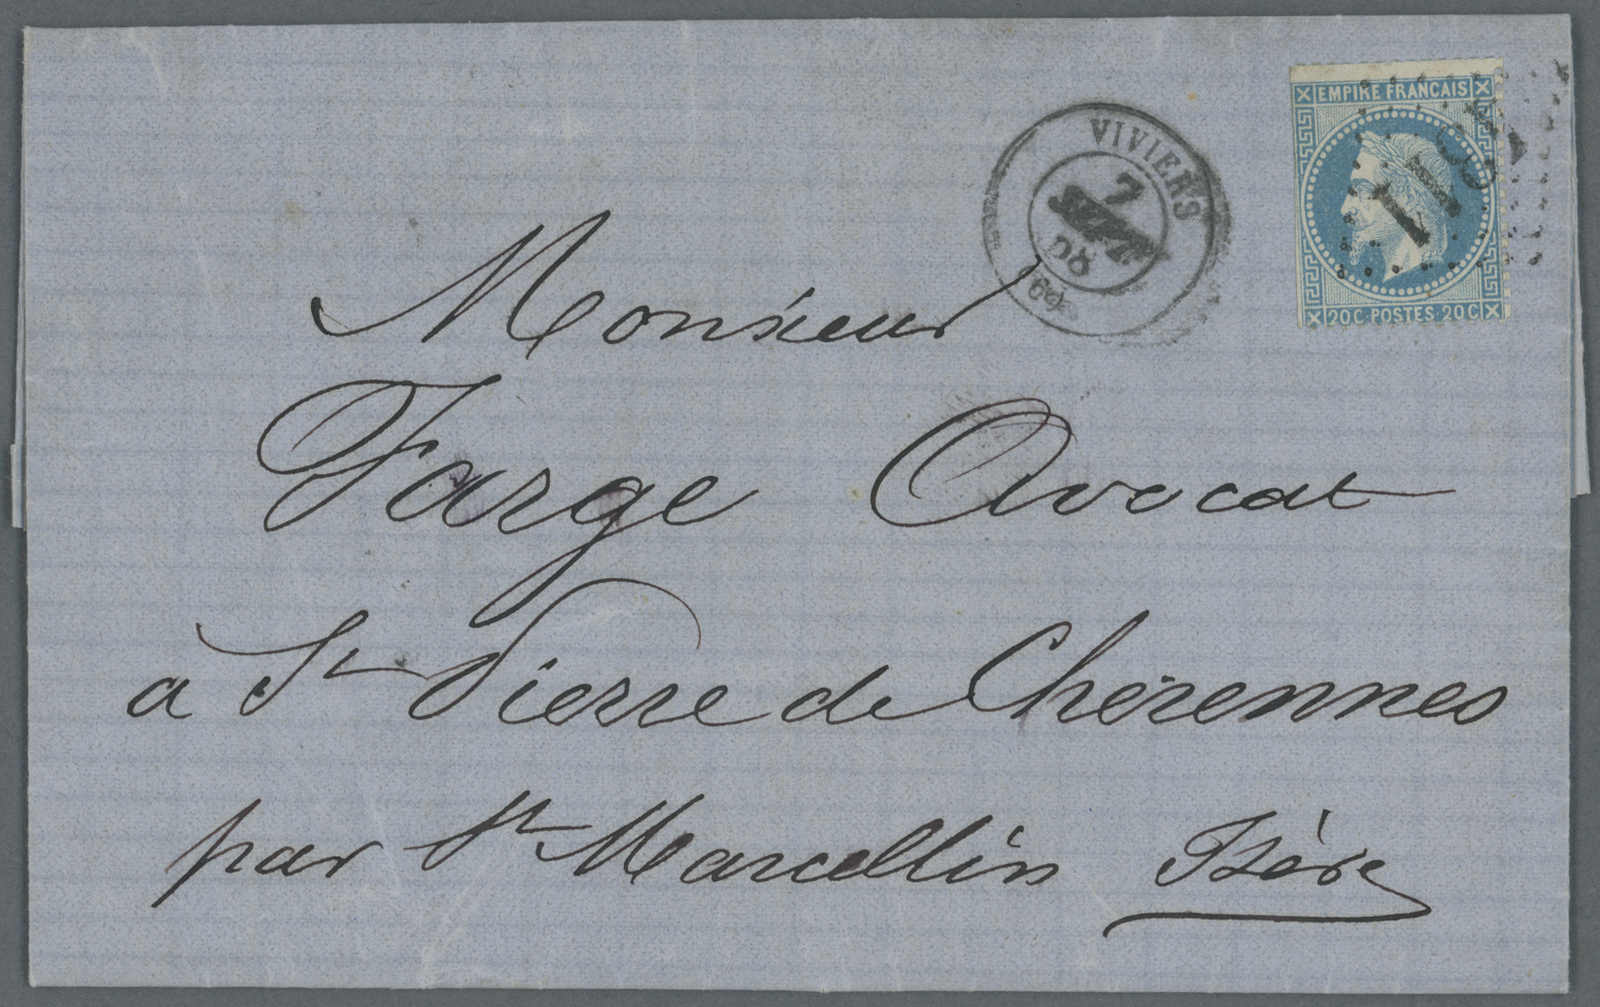 EMPIRE FRANCAIS
20C POSTES 20C
VIVIERS
7
SEPT
Monsieur
Farge Avocat
a St Pierre de Chérennes
par St Marcellin Isère